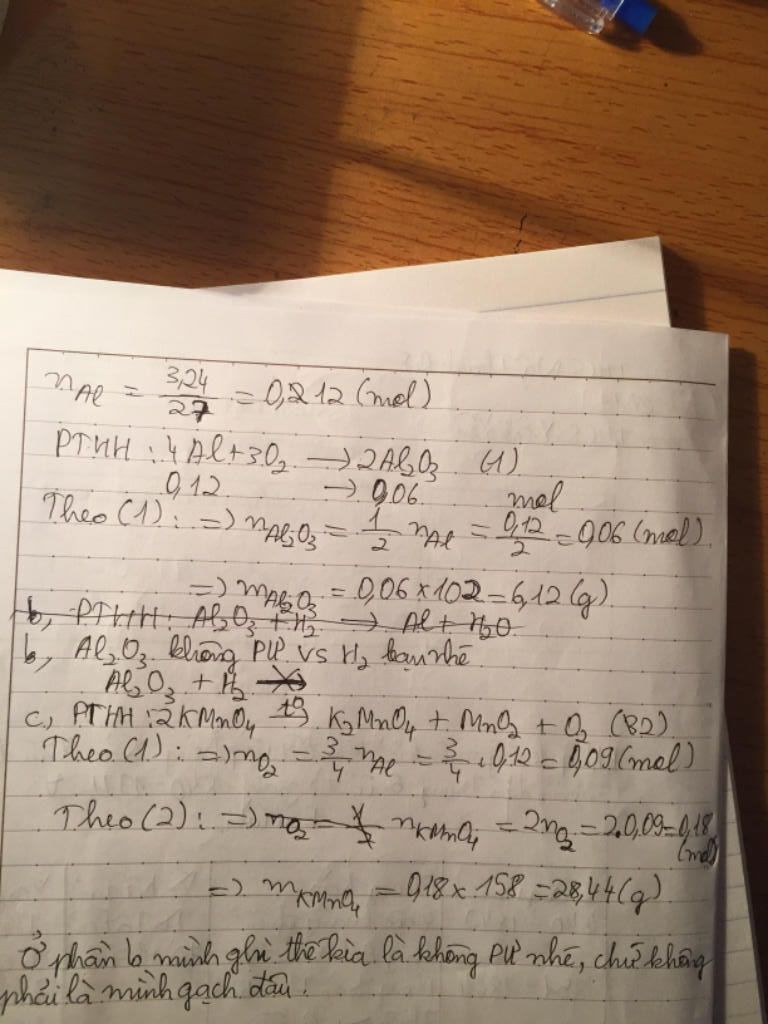 nAl = 3,24/27 = 0,12 (mol)
PTHH : 4Al + 3O₂ → 2Al₂O₃ (1)
0,12 → 0,06 mol
Theo (1) : => nAl₂O₃ = 1/2 nAl = 0,12/2 = 0,06 (mol)
=> mAl₂O₃ = 0,06 × 102 = 6,12 (g)
b, PTHH : Al₂O₃ + H₂ → Al + H₂O
b, Al₂O₃ không PƯ vs H₂ bạn nhé
Al₂O₃ + H₂ -X->
c, PTHH : 2KMnO₄ -t°-> K₂MnO₄ + MnO₂ + O₂ (2)
Theo (1) : => nO₂ = 3/4 nAl = 3/4 . 0,12 = 0,09 (mol)
Theo (2) : => nO₂ = 1/2 nKMnO₄ = 2nO₂ = 2.0,09 = 0,18 (mol)
=> mKMnO₄ = 0,18 × 158 = 28,44 (g)
Ở phần b mình ghi thế kia là không PƯ nhé, chứ không
phải là mình gạch đâu.